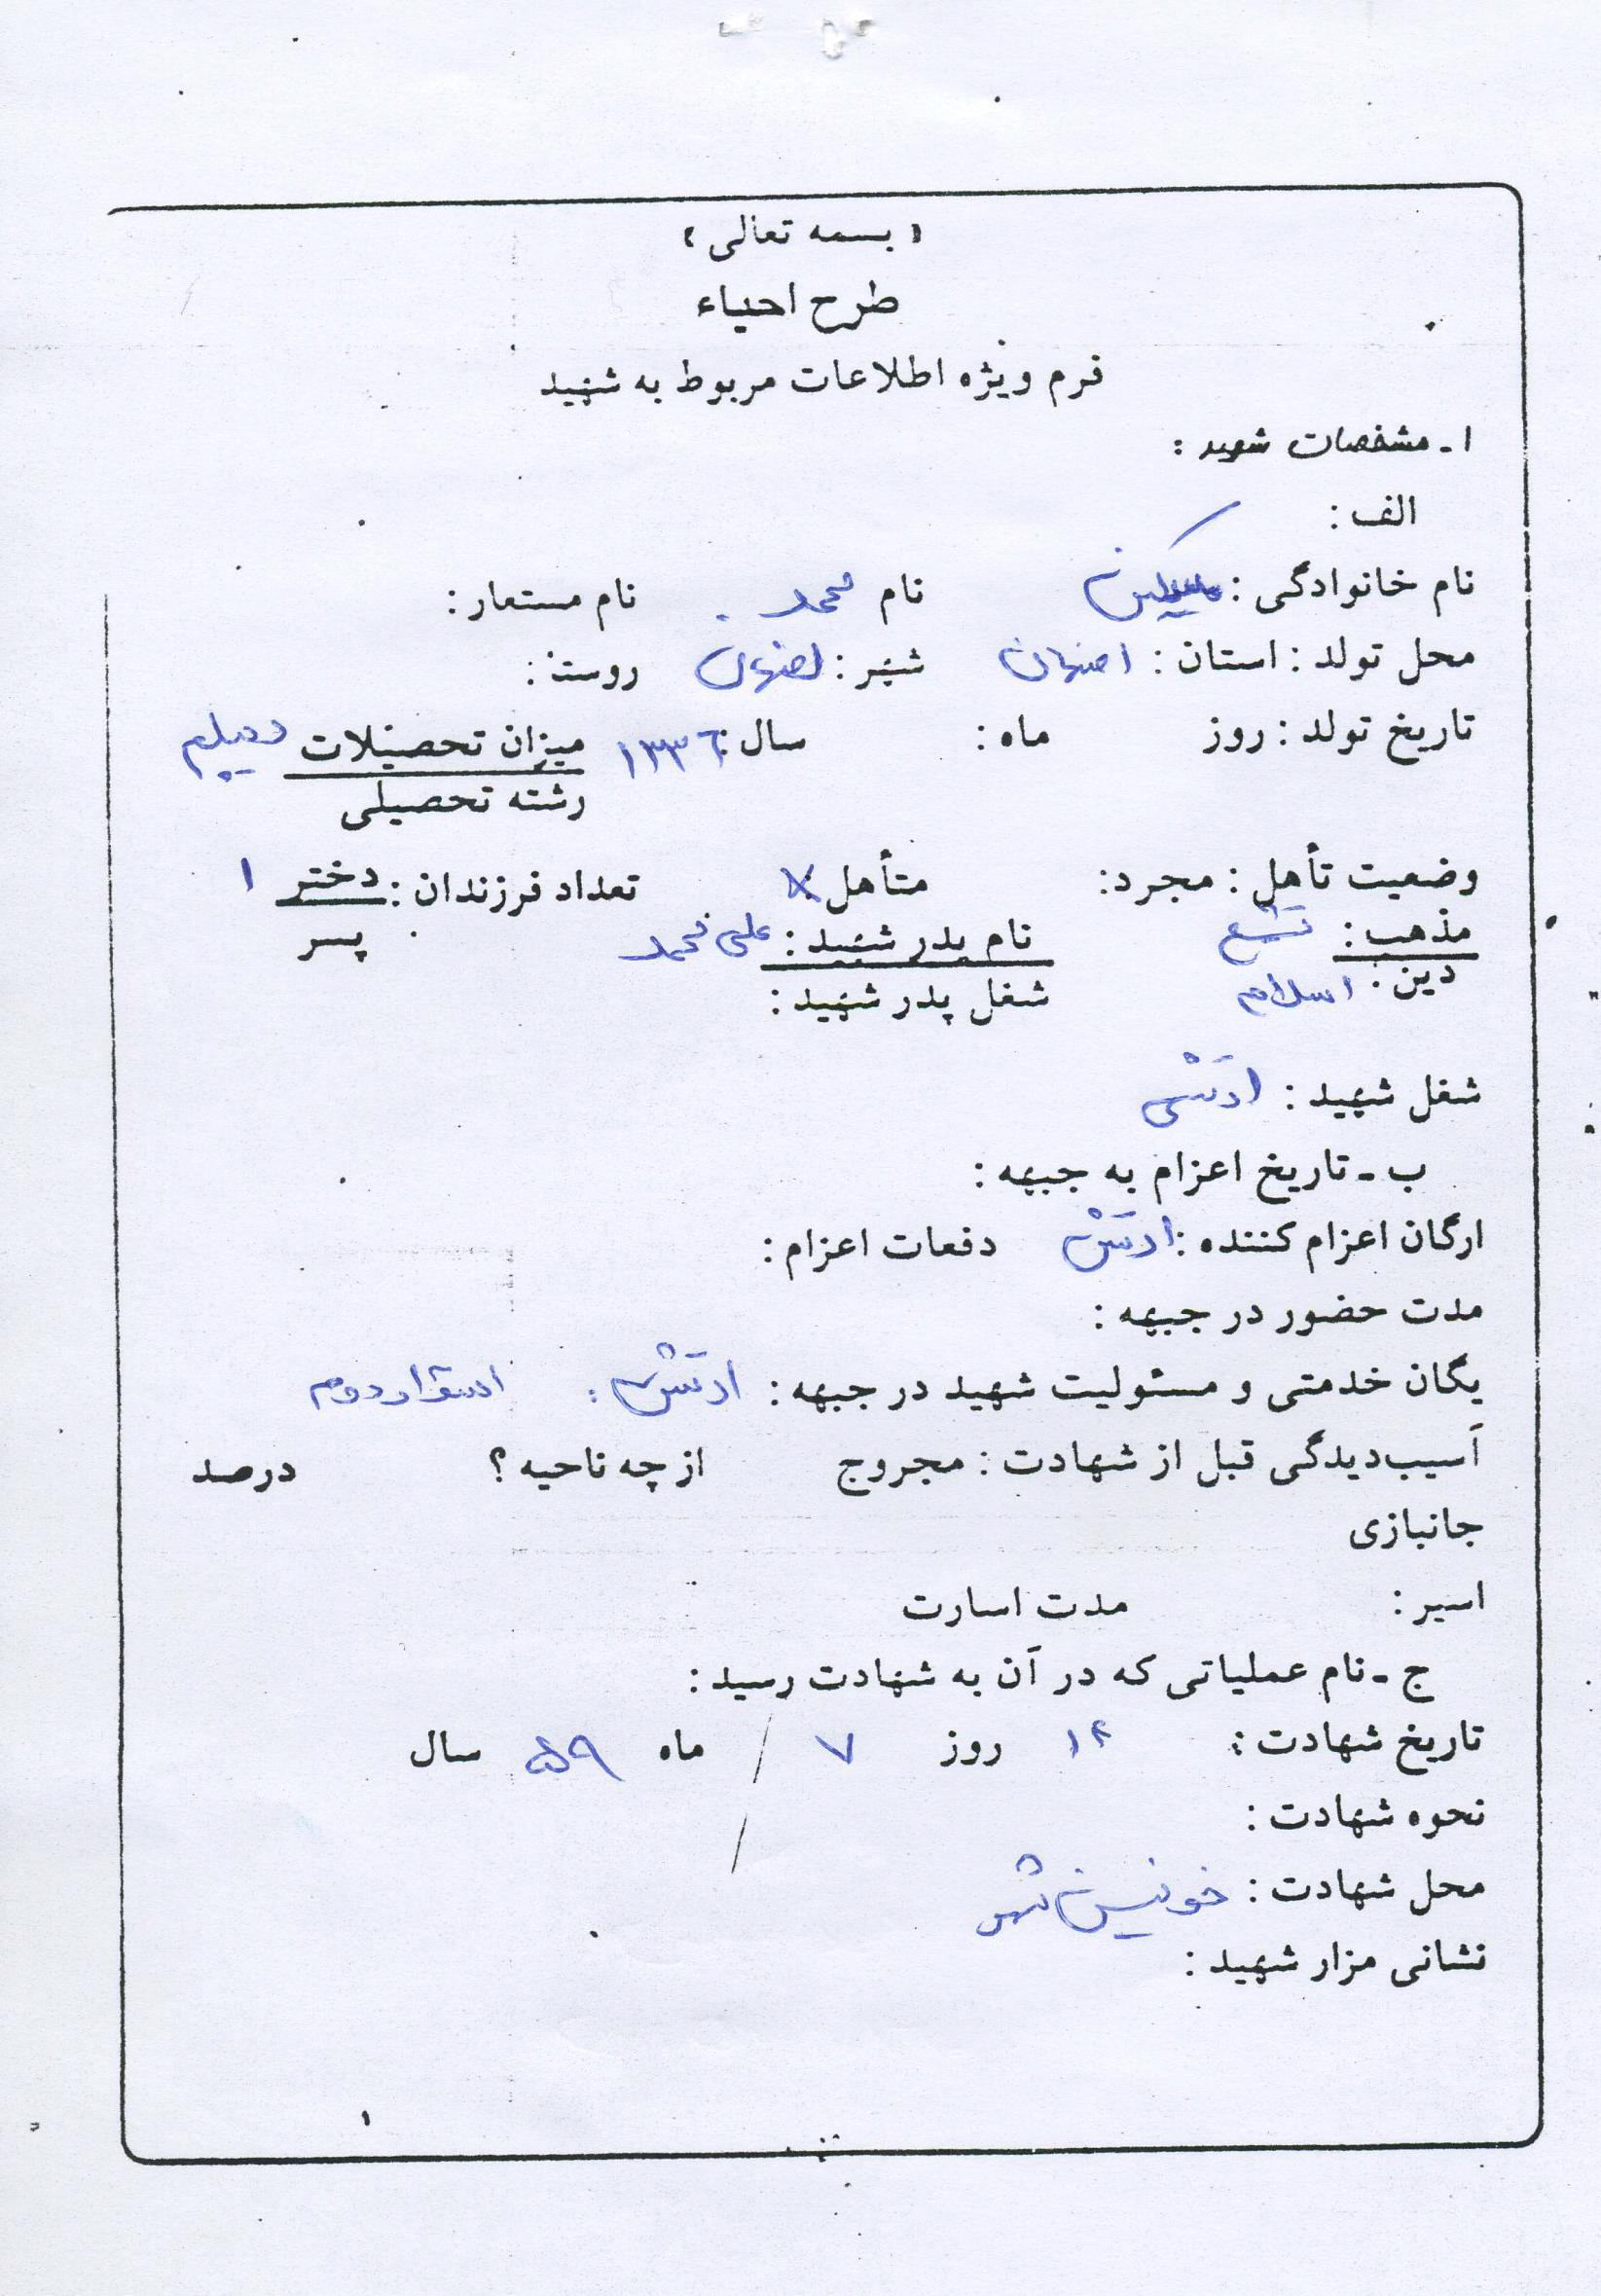 « بسمه تعالی »
طرح احیاء
فرم ویژه اطلاعات مربوط به شهید
۱ ـ مشخصات شهید :
الف :
نام خانوادگی : نام محمد نام مستعار :
محل تولد : استان : اصفهان شهر : اصفهان روستا :
تاریخ تولد : روز ماه : سال : ۱۳۳۶ میزان تحصیلات دیپلم
رشته تحصیلی
وضعیت تأهل : مجرد : متأهل : X تعداد فرزندان : دختر ۱
پسر
مذهب : تشیع نام پدر شهید : علی محمد
دین : اسلام شغل پدر شهید :
شغل شهید : ارتشی
ب ـ تاریخ اعزام به جبهه :
ارگان اعزام کننده : ارتش دفعات اعزام :
مدت حضور در جبهه :
یگان خدمتی و مسئولیت شهید در جبهه : ارتش : استوار دوم
آسیب‌دیدگی قبل از شهادت : مجروح از چه ناحیه ؟ درصد
جانبازی
اسیر : مدت اسارت
ج ـ نام عملیاتی که در آن به شهادت رسید :
تاریخ شهادت : روز ۷ ماه ۵۹ سال
نحوه شهادت :
محل شهادت : خونین شهر
نشانی مزار شهید :
۱